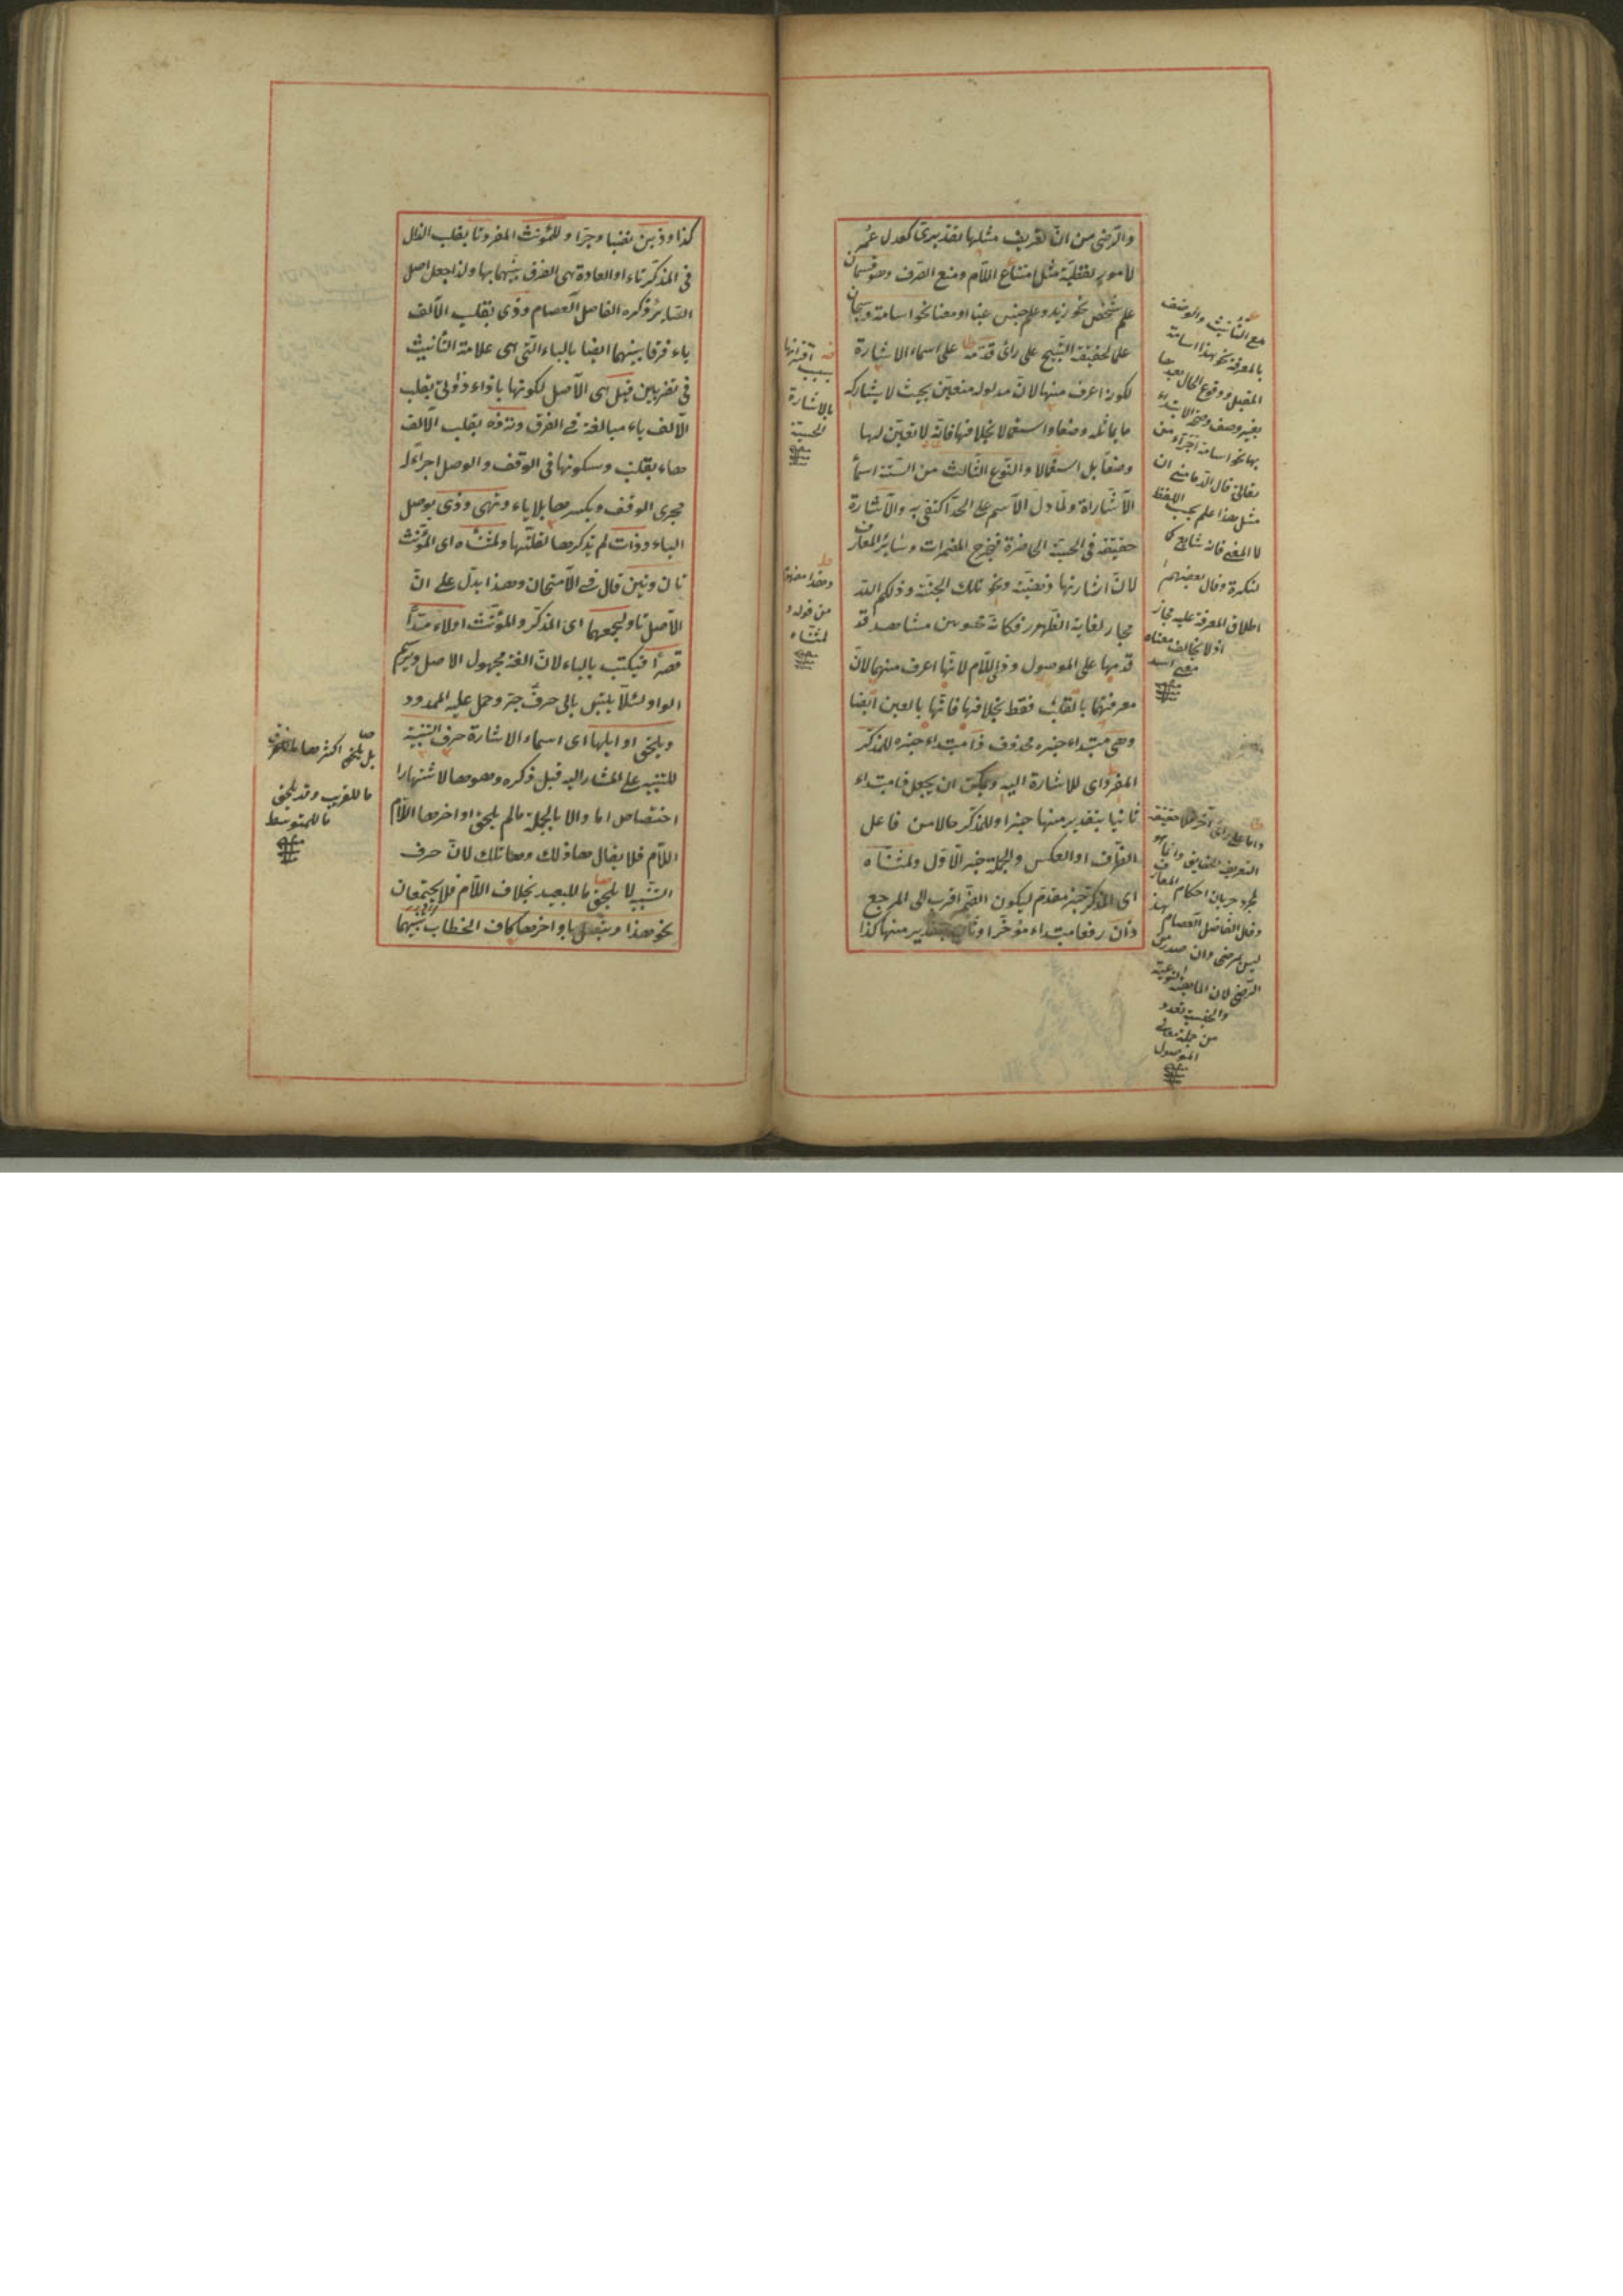 والرضى من ان تعريف مثلها تقديرى كعدل عمر
لامور لفظية مثل امتناع اللام ومنع الصرف وهو قسمان
علم شخص نحو زيد وعلم جنس عينا او معنا نحو اسامة وسبحان
على حقيقة التسبيح على راى قدمه على اسماء الاشارة
لكونه اعرف منها لان مدلوله متعين بحيث لا يشاركه
ما يماثله وضعا واستعمالا بخلافها فانه لا تعين لها
وضعا بل استعمالا والنوع الثالث من الستة اسما
الاشارة ولما دل الاسم على الحد اكتفى به والاشارة
حقيقة فى الحسية الحاضرة فيخرج المضمرات وسائر المعارف
لان اشارتها ذهنية ونحو تلك الجنة وذلكم الله
مجاز لغاية الظهور فكانه محسوس مشاهد قد
قدمها على الموصول وذى اللام لانها اعرف منها لان
معرفتهما بالقلب فقط بخلافها فانها بالعين ايضا
وهى مبتداء خبره محذوف ذا مبتداء خبره للمذكر
المفرد اى للاشارة اليه ويمكن ان يجعل ذا مبتداء
ثانيا بتقدير منها خبرا وللمذكر حالا من فاعل
الظرف او العكس والجملة خبر الاول ولمثناه
اى المذكر خبر مقدم ليكون الضم اقرب الى المرجع
ذان رفعا مبتداء مؤخرا وثان بتقدير منها كذا
مع التأنيث والوصف
بالمعرفة نحو هذا اسامة
المقبل ووقوع الحال بعدها
بغير وصف وصحة الابتداء
بها نحو اسامة اجراء من
ثعالة قال الدمامينى ان
مثل هذا علم بحسب اللفظ
لا المعنى فانه شايع كا
لنكرة وقال بعضهم
اطلاق المعرفة عليه مجاز
اذ لا يخالف معناه
معنى اسد
واما على راى اخر فلا حقيقة
التعريف للحقايق وانما هو
مجرد جريان احكام المعارف
وقال الفاضل العصام هذا
ليس بمرضى وان صدر من
الرضى لان الماهية النوعية
والجنسية تعد
من جملة معانى
الموصول
اقترانها
بسبب
بالاشارة
الحسية
وهذا مفهوم
من قوله و
لمثناه
كذا وذين نصبا وجرا وللمؤنث المفرد تا بقلب الذال
فى المذكر تاء او العادة هى الفرق بينهما بها ولذا جعل اصل
السائر ذكره الفاضل العصام وذى بقلب الالف
ياء فرقا بينهما ايضا بالياء التى هى علامة التأنيث
فى تضربين قيل هى الاصل لكونها باذاء ذا وتى بقلب
الالف ياء مبالغة فى الفرق وته وذه بقلب الالف
هاء بقلب وسكونها فى الوقف والوصل اجراء له
مجرى الوقف وبكسرها بلا ياء وتهى وذى بوصل
الياء وذات لم يذكرها لقلتها ولمثناه اى المؤنث
تان وتين قال فى الامتحان وهذا يدل على ان
الاصل تا ولجمعهما اى المذكر والمؤنث اولاء مدا
قصرا فيكتب بالياء لان الفه مجهول الاصل ويرسم
الواو لئلا يلتبس بالى حرف جر وحمل عليه الممدود
ويلحق اوايلها اى اسماء الاشارة حرف التنبيه
للتنبيه على المشار اليه قبل ذكره وهو ها لاشتهارا
اختصاص اما والا بالجملة ما لم يلحق اواخرها اللام
اللام فلا يقال هاذلك وهاتلك لان حرف
التنبيه لا يلحق ما للبعيد بخلاف اللام فلا يجتمعان
نحو هذا ويتصل باواخرها كاف الخطاب تنبيها
بل يلحق اكثرها
ما للقريب وقد يلحق
ما للمتوسط